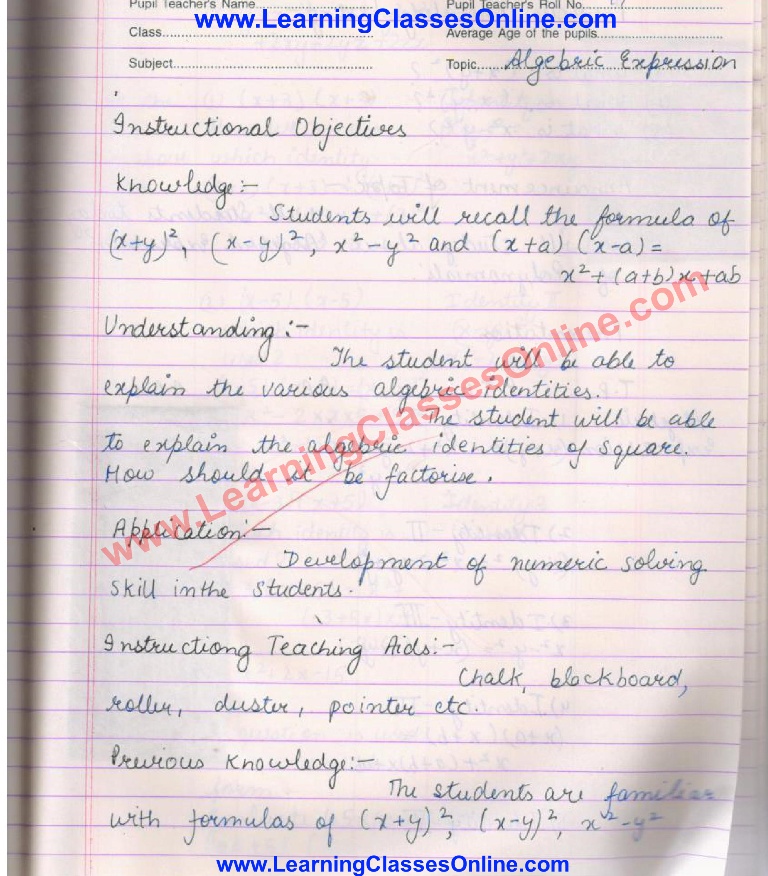 Pupil Teacher's Name
Pupil Teacher's Roll No.
www.LearningClassesOnline.com
Class
Average Age of the pupils
Subject
Topic Algebric Expression
Instructional Objectives
Knowledge:-
Students will recall the formula of
(x+y)², (x-y)², x²-y² and (x+a) (x-a) =
x²+(a+b)x+ab
Understanding :-
The student will be able to
explain the various algebric identities.
The student will be able
to explain the algebric identities of square.
How should it be factorise.
Application:-
Development of numeric solving
skill in the students.
Instructiong Teaching Aids:-
Chalk, blackboard,
roller, duster, pointer etc.
Previous Knowledge:-
The students are familiar
with formulas of (x+y)², (x-y)², x²-y²
www.LearningClassesOnline.com
www.LearningClassesOnline.com